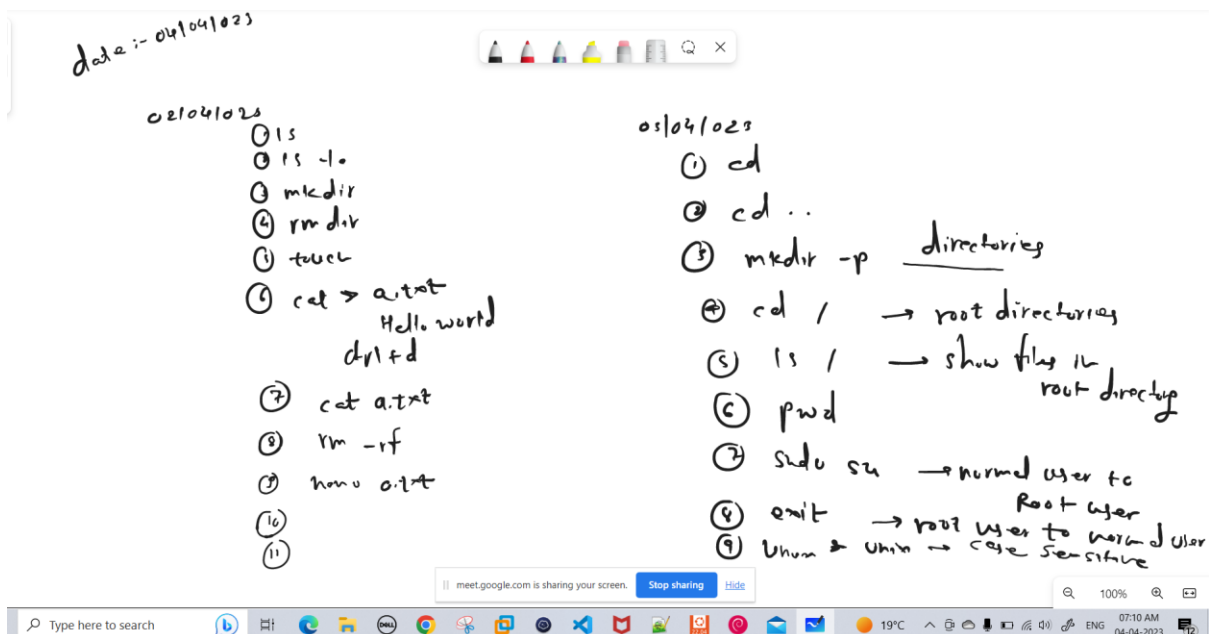 date :- 04/04/023
02/04/023
① ls
② ls -l.
③ mkdir
④ rmdir
⑤ touch
⑥ cat > a.txt
Hello world
ctrl + d
⑦ cat a.txt
⑧ rm -rf
⑨ nano a.txt
⑩
⑪
03/04/023
① cd
② cd ..
③ mkdir -p directories
④ cd / → root directories
⑤ ls / → show files in
root directory
⑥ pwd
⑦ sudo su → normal user to
Root user
⑧ exit → root user to normal user
⑨ & unix → case sensitive
meet.google.com is sharing your screen. Stop sharing Hide
100%
Type here to search
DELL
19°C
ENG
07:10 AM
04-04-2023
12